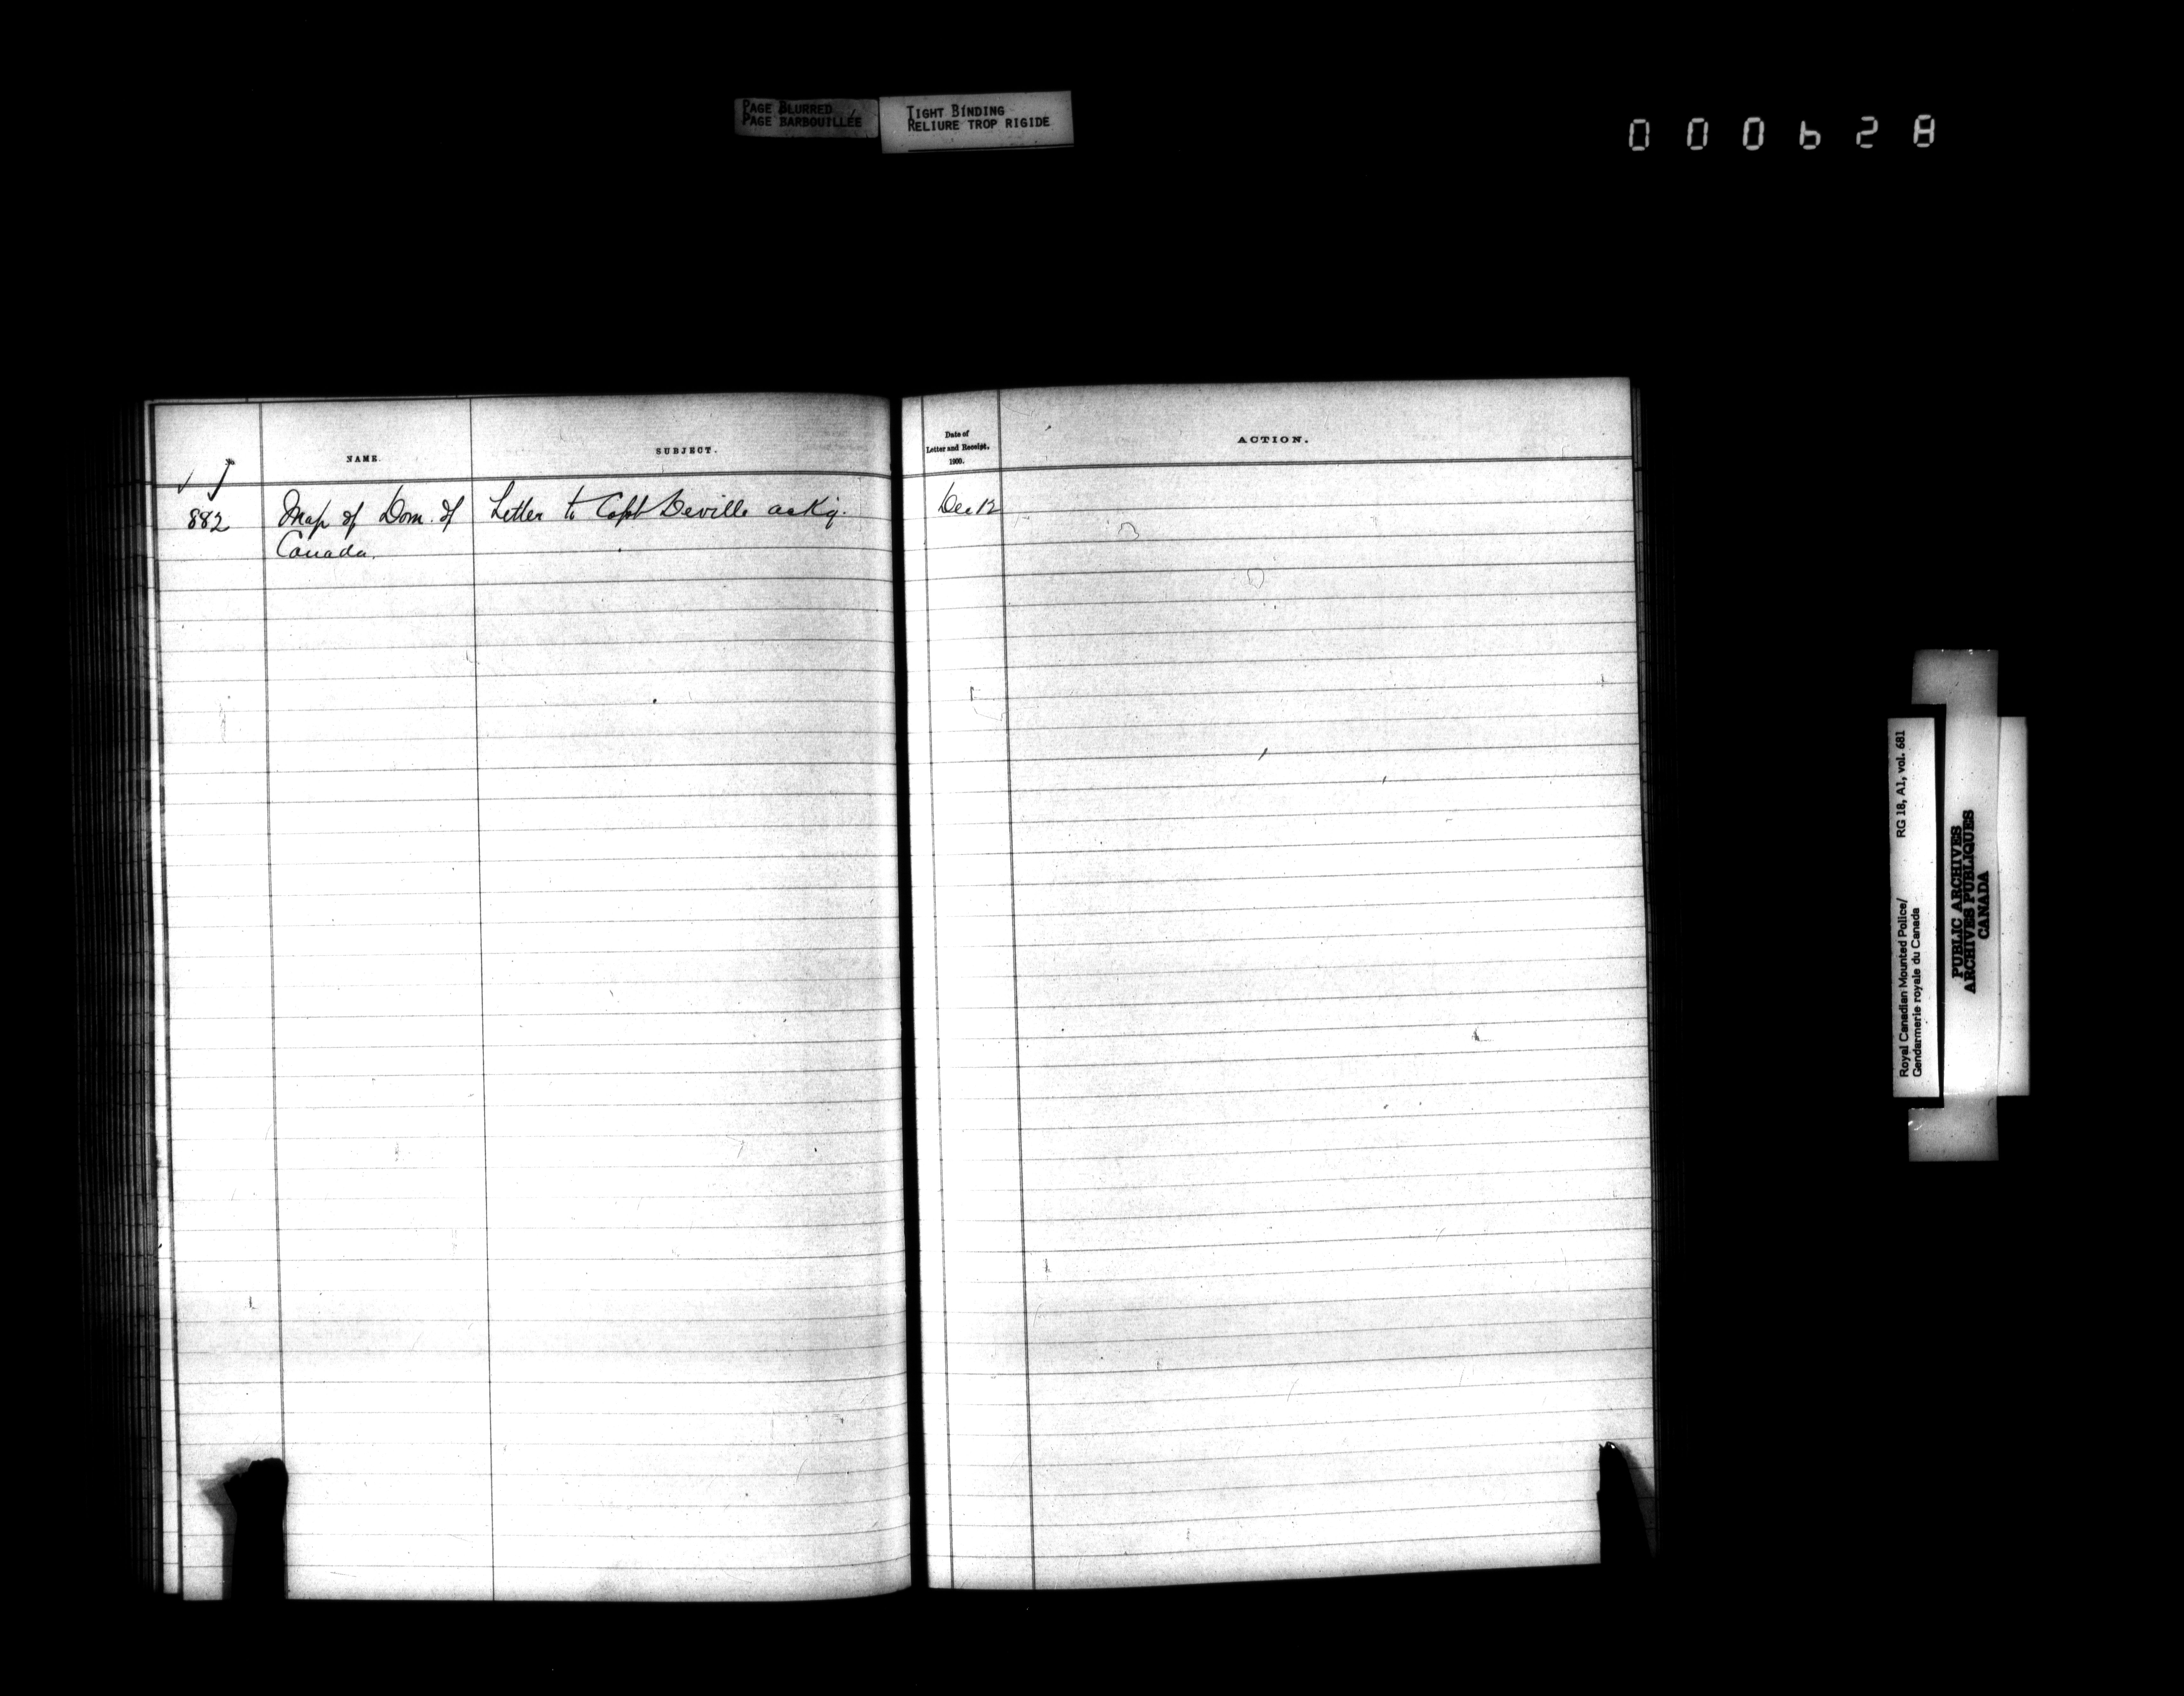 PAGE BLURRED
PAGE BARBOUILLÉE
TIGHT BINDING
RELIURE TROP RIGIDE
000628
NAME.
SUBJECT.
Date of
Letter and Receipt.
1900.
ACTION.
882 Map of Dom. of Letter to Capt Deville ackg. Dec 12
Canada.
Royal Canadian Mounted Police/ RG 18, A1, vol. 681
Gendarmerie royale du Canada
PUBLIC ARCHIVES
ARCHIVES PUBLIQUES
CANADA